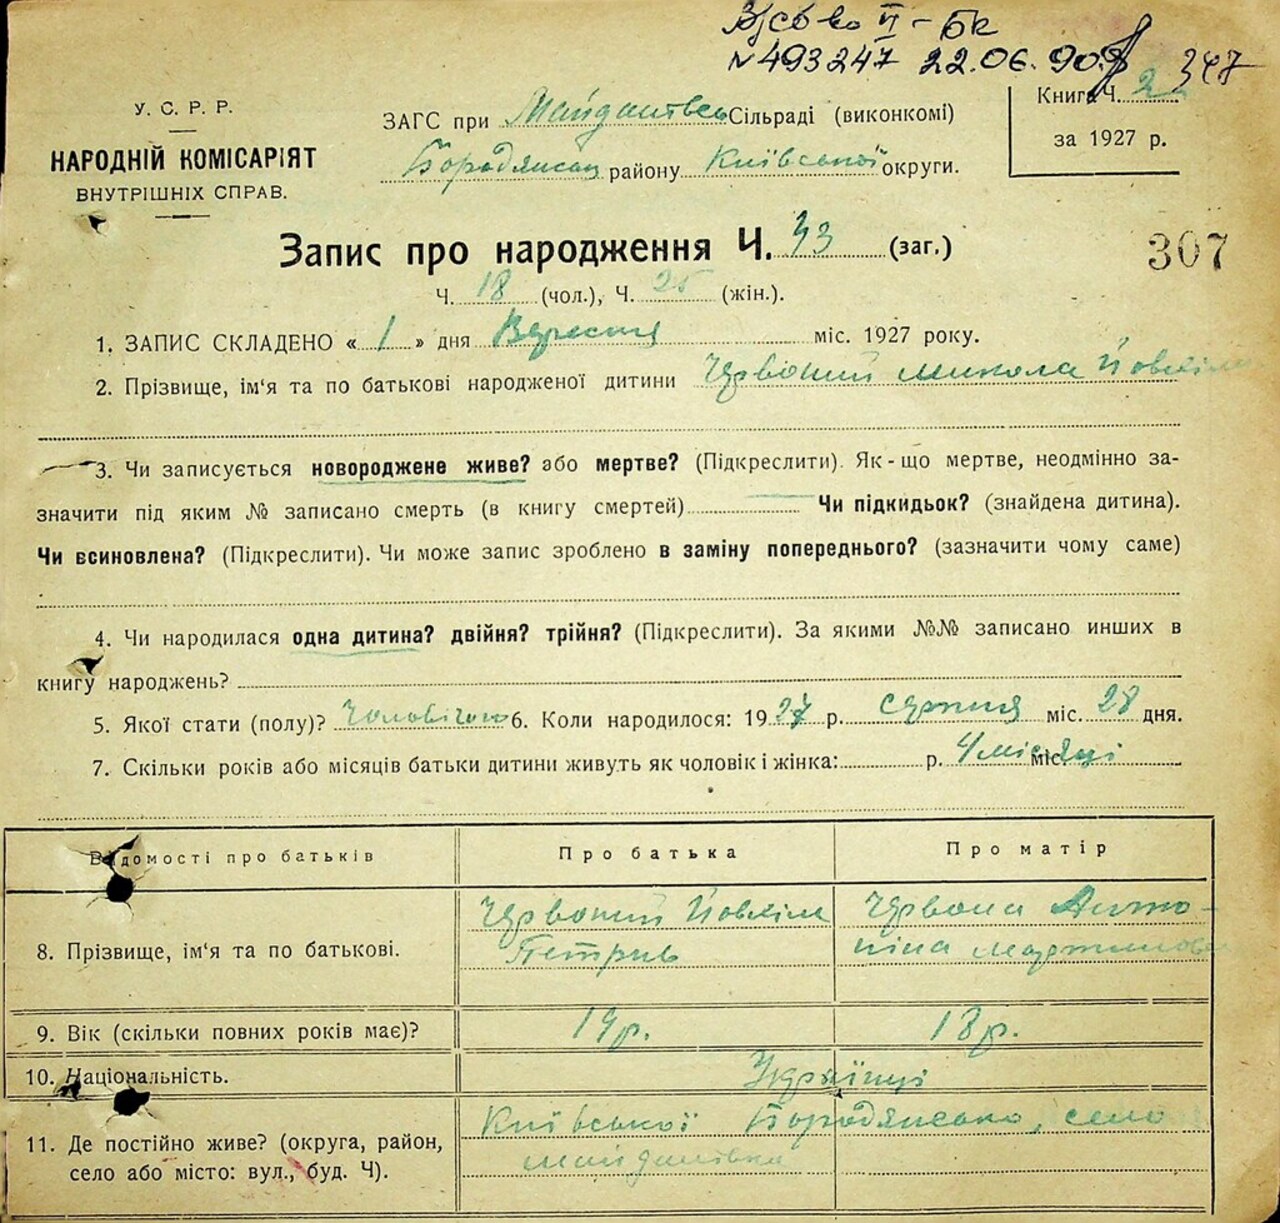 № 493247 22.06.90 347
У. С. Р. Р.
НАРОДНІЙ КОМІСАРІЯТ
ВНУТРІШНІХ СПРАВ.
ЗАГС при Майданівськ Сільраді (виконкомі)
Бородянськ району Київської округи.
Книга Ч. 2
за 1927 р.
307
Запис про народження Ч. 43 (заг.)
Ч. 18 (чол.), Ч. 25 (жін.).
1. ЗАПИС СКЛАДЕНО « 1 » дня Вересня міс. 1927 року.
2. Прізвище, ім‘я та по батькові народженої дитини Червоний Микола
3. Чи записується новороджене живе? або мертве? (Підкреслити). Як-що мертве, неодмінно за-
значити під яким № записано смерть (в книгу смертей) Чи підкидьок? (знайдена дитина).
Чи всиновлена? (Підкреслити). Чи може запис зроблено в заміну попереднього? (зазначити чому саме)
4. Чи народилася одна дитина? двійня? трійня? (Підкреслити). За якими №№ записано инших в
книгу народжень?
5. Якої стати (полу)? Чоловічого 6. Коли народилося: 1927 р. серпня міс. 28 дня.
7. Скільки років або місяців батьки дитини живуть як чоловік і жінка: р. 4 місяці міс.
Відомості про батьків Про батька Про матір
8. Прізвище, ім‘я та по батькові. Червоний Йовхім Червона Анто-
Петрив ніна Мартинов
9. Вік (скільки повних років має)? 19 р. 18 р.
10. Національність. Українці
11. Де постійно живе? (округа, район, Київської Бородянсько, село
село або місто: вул., буд. Ч). Майданівка